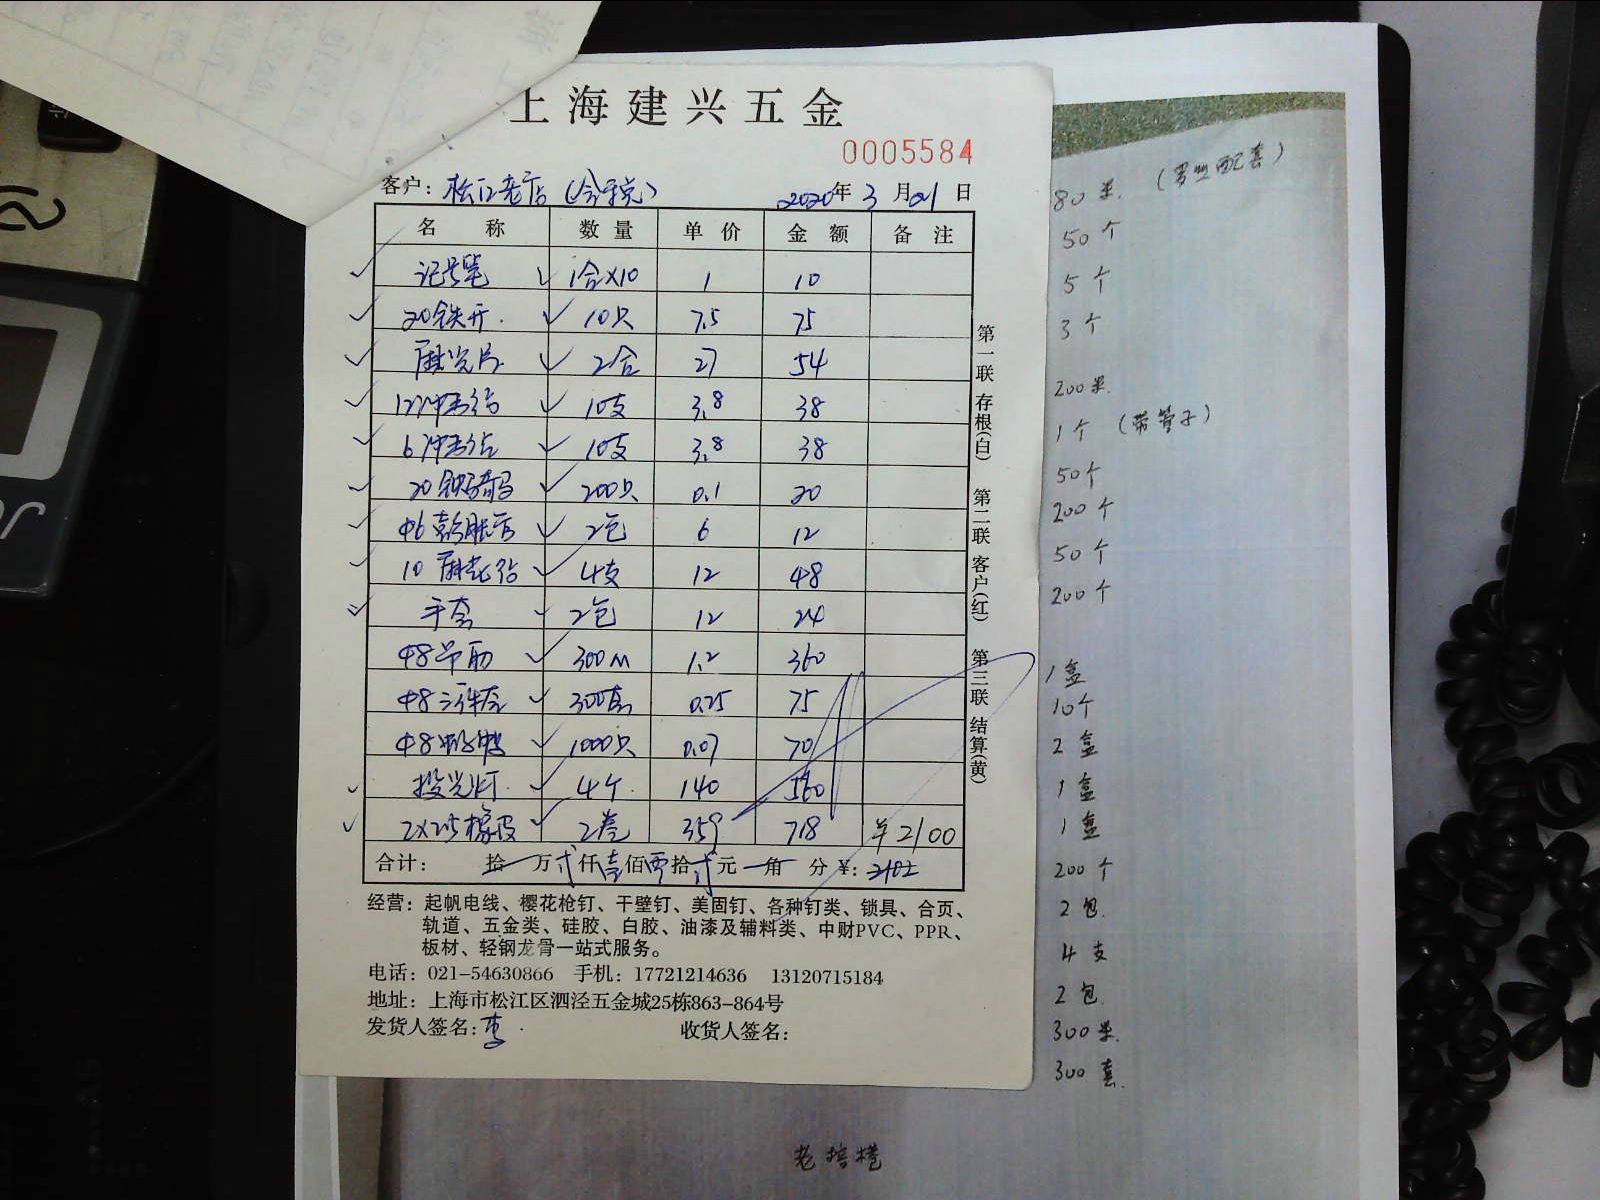 上海建兴五金
0005584
客户: 松江老店 2020年3月21日
名称 数量 单价 金额 备注
记号笔 1合×10 1 10
20铁开 10只 7.5 75
磨光片 2合 27 54
12冲击钻 10支 3.8 38
6冲击钻 10支 3.8 38
20铁骑马 200只 0.1 20
Φ6膨胀管 2包 6 12
10麻花钻 4支 12 48
手套 2包 12 24
Φ8吊筋 300M 1.2 360
Φ8三件套 300套 0.25 75
Φ8 1000只 0.07 70
投光灯 4个 140 560
2×2.5橡皮 2卷 359 718 ¥2100
合计: 拾万贰仟壹佰零拾贰元角分¥: 2102
第一联 存根(白) 第二联 客户(红) 第三联 结算(黄)
经营: 起帆电线、樱花枪钉、干壁钉、美固钉、各种钉类、锁具、合页、
轨道、五金类、硅胶、白胶、油漆及辅料类、中财PVC、PPR、
板材、轻钢龙骨一站式服务。
电话: 021-54630866 手机: 17721214636 13120715184
地址: 上海市松江区泗泾五金城25栋863-864号
发货人签名: 李 收货人签名:
80米 (配套)
50个
5个
3个
200米
1个 (带管子)
50个
200个
50个
200个
1盒
10个
2盒
1盒
1盒
200个
2包
4支
2包
300米
300套